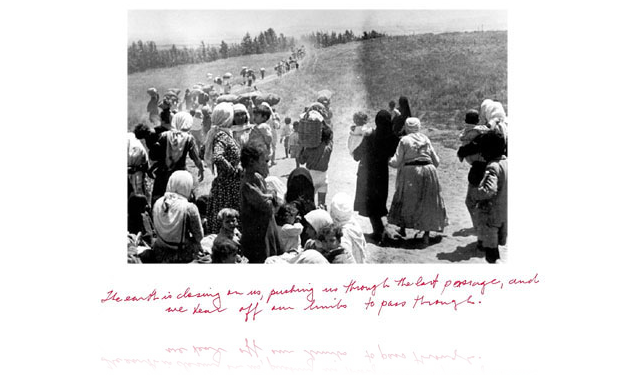 The earth is closing on us, pushing us through the last passage, and
we tear off our limbs to pass through.